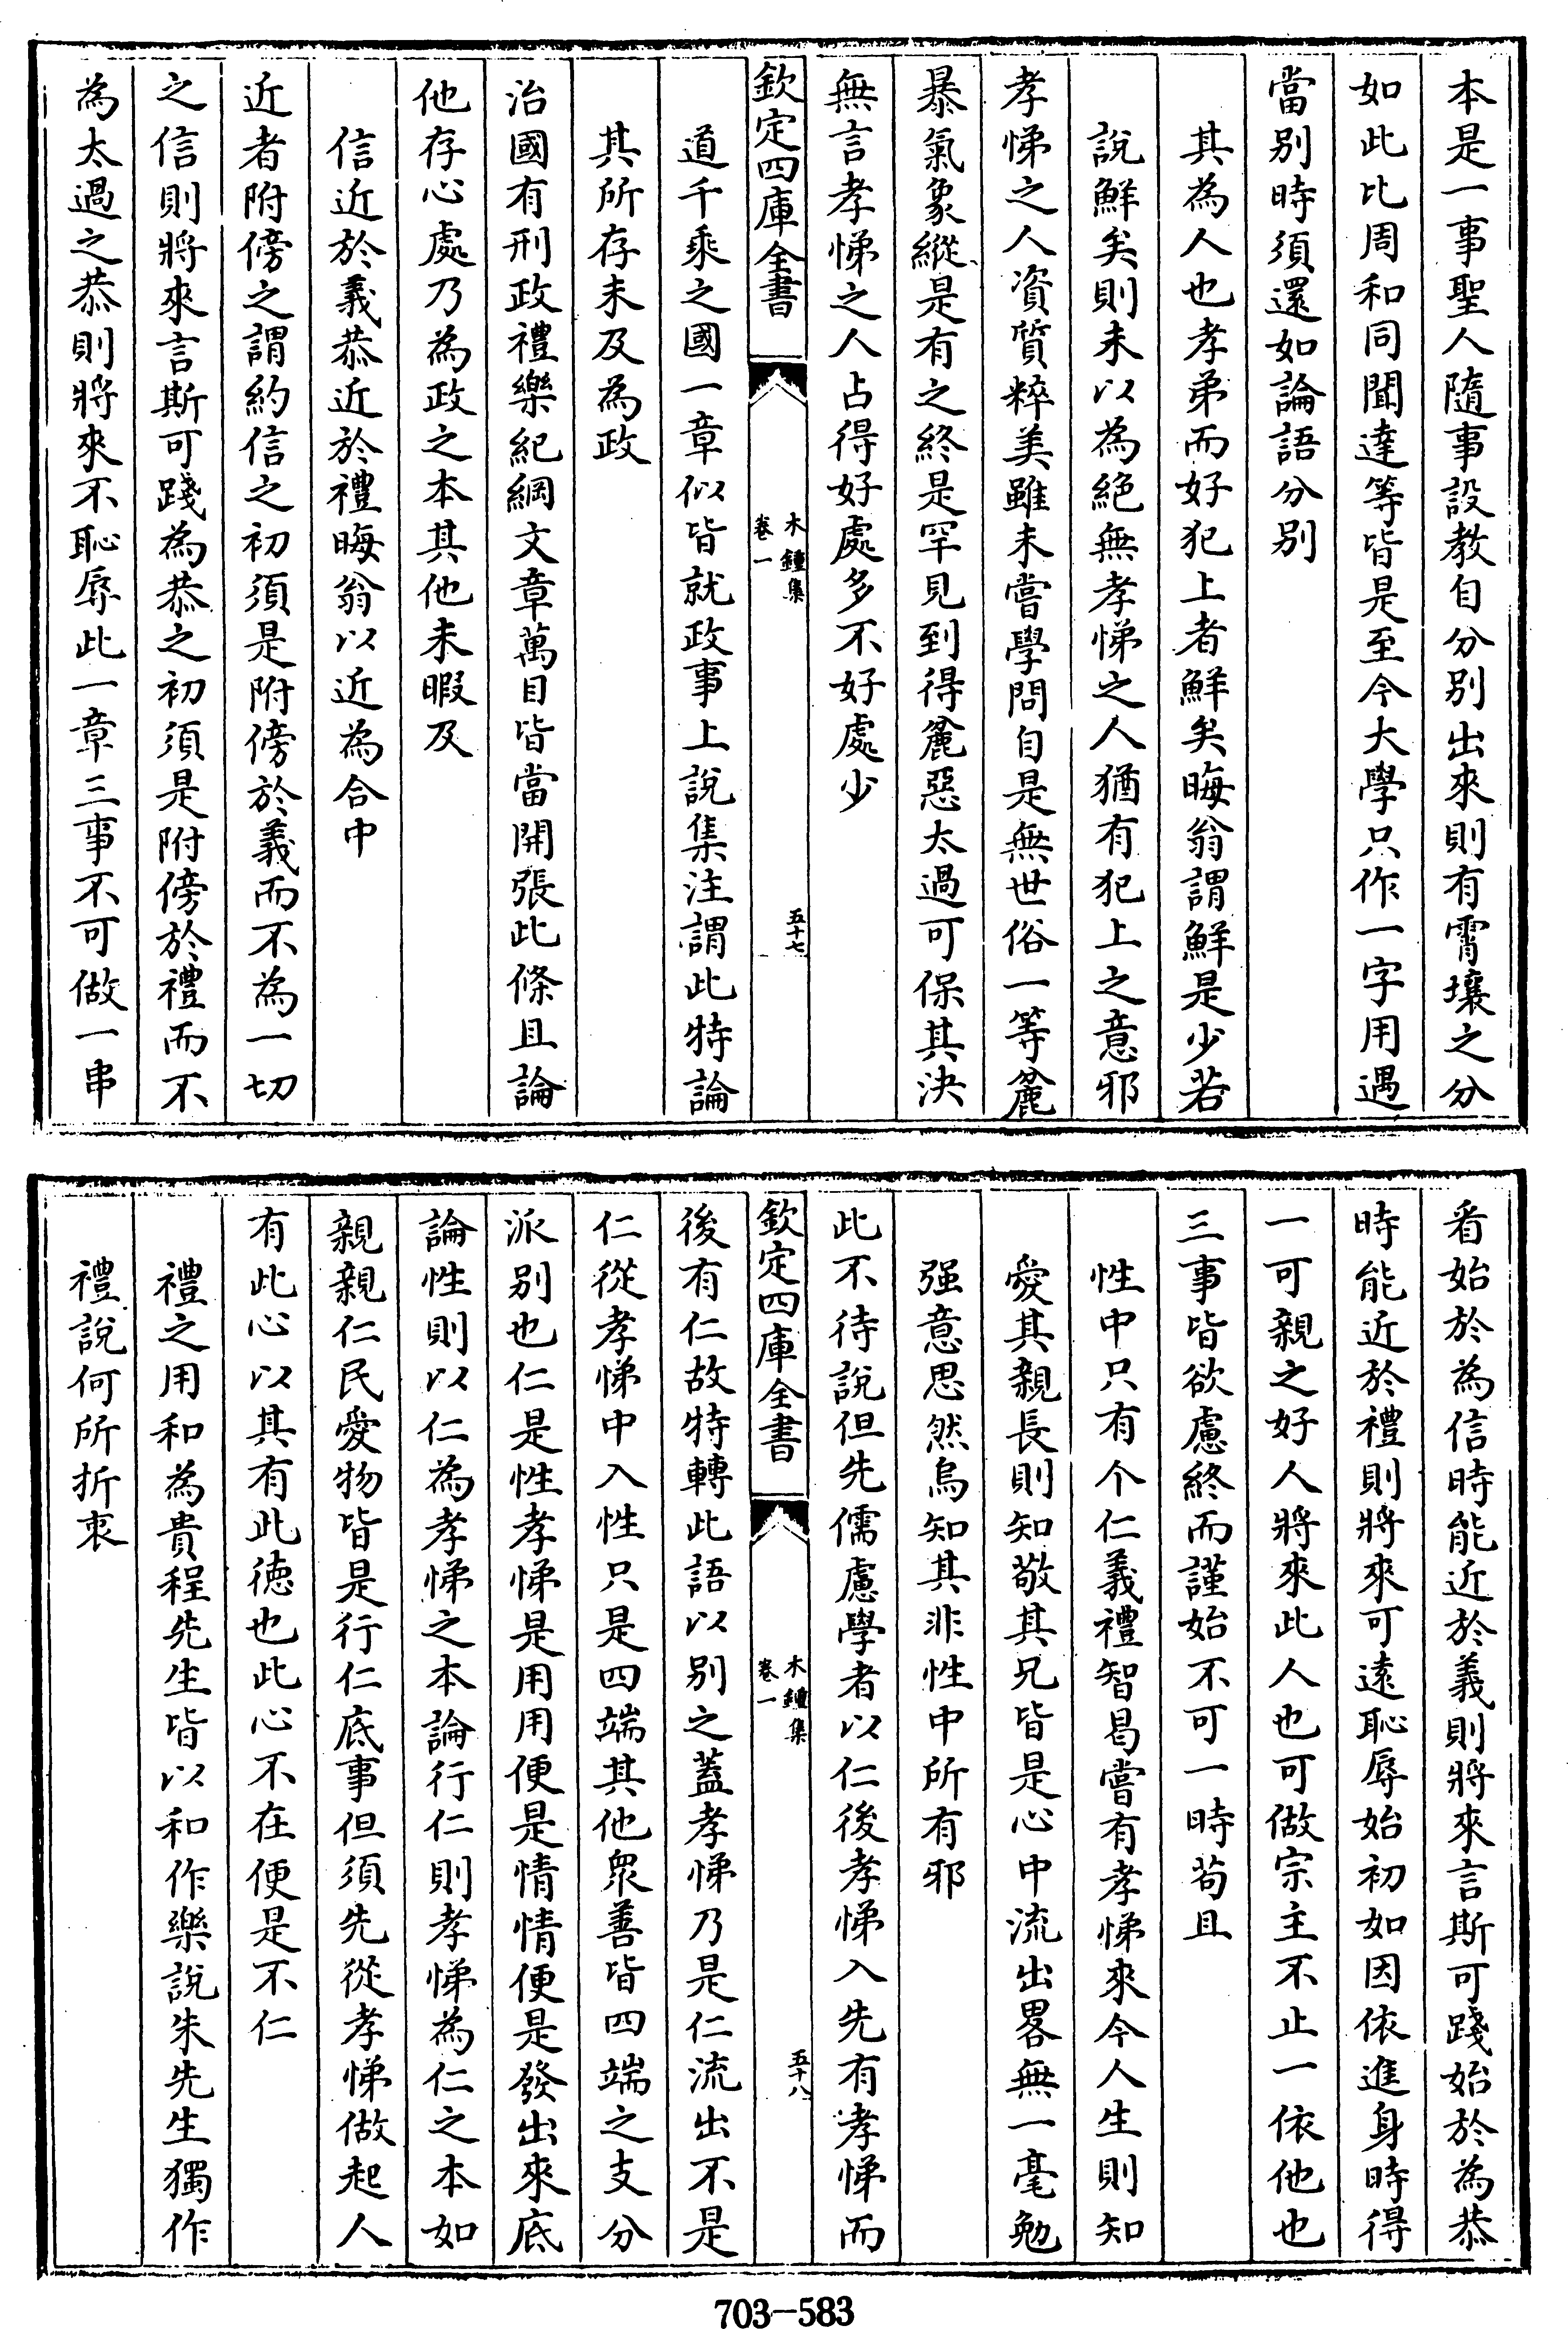 本是一事聖人隨事設教自分别出來則有霄壤之分
如此比周和同聞達等皆是至今大學只作一字用遇
當别時須還如論語分别
其為人也孝弟而好犯上者鮮矣晦翁謂鮮是少若
說鮮矣則未以為絶無孝悌之人猶有犯上之意邪
孝悌之人資質粹美雖未嘗學問自是無世俗一等麄
暴氣象縱是有之終是罕見到得麄惡太過可保其決
無言孝悌之人占得好處多不好處少
欽定四庫全書
木鍾集
卷一
五十七
道千乘之國一章似皆就政事上說集注謂此特論
其所存未及為政
治國有刑政禮樂紀綱文章萬目皆當開張此條且論
他存心處乃為政之本其他未暇及
信近於義恭近於禮晦翁以近為合中
近者附傍之謂約信之初須是附傍於義而不為一切
之信則將來言斯可踐為恭之初須是附傍於禮而不
為太過之恭則將來不恥辱此一章三事不可做一串
看始於為信時能近於義則將來言斯可踐始於為恭
時能近於禮則將來可遠恥辱始初如因依進身時得
一可親之好人將來此人也可做宗主不止一依他也
三事皆欲慮終而謹始不可一時苟且
性中只有个仁義禮智曷嘗有孝悌來今人生則知
愛其親長則知敬其兄皆是心中流出畧無一毫勉
强意思然烏知其非性中所有邪
此不待說但先儒慮學者以仁後孝悌入先有孝悌而
欽定四庫全書
木鍾集
卷一
五十八
後有仁故特轉此語以别之蓋孝悌乃是仁流出不是
仁從孝悌中入性只是四端其他衆善皆四端之支分
派别也仁是性孝悌是用用便是情情便是發出來底
論性則以仁為孝悌之本論行仁則孝悌為仁之本如
親親仁民愛物皆是行仁底事但須先從孝悌做起人
有此心以其有此徳也此心不在便是不仁
禮之用和為貴程先生皆以和作樂說朱先生獨作
禮說何所折衷
703—583